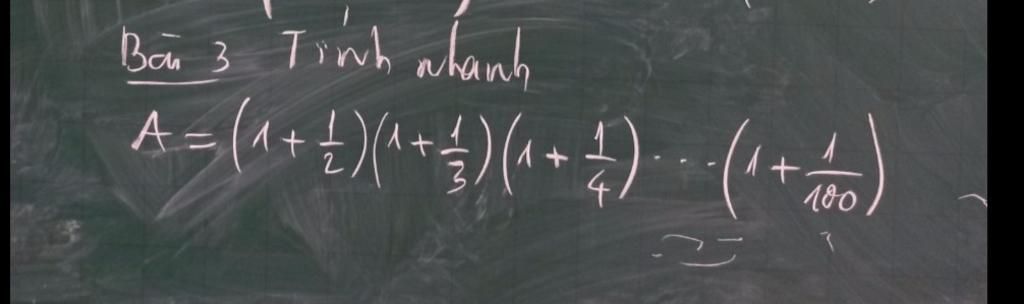 Bài 3 Tính nhanh
A = (1 + 1/2)(1 + 1/3)(1 + 1/4) ... (1 + 1/100)